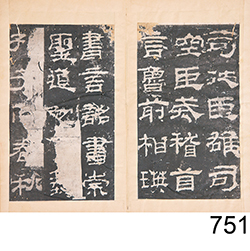 司徒臣雄司
空臣戒稽首
言魯前相瑛
書言詔書崇
聖道
春秋
751